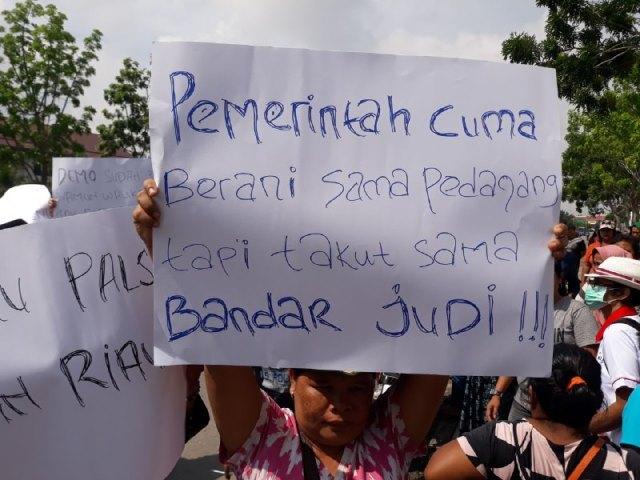 Pemerintah cuma
Berani sama pedagang
tapi takut sama
Bandar Judi !!!
DEMO SUDAH
PALS
RIAU